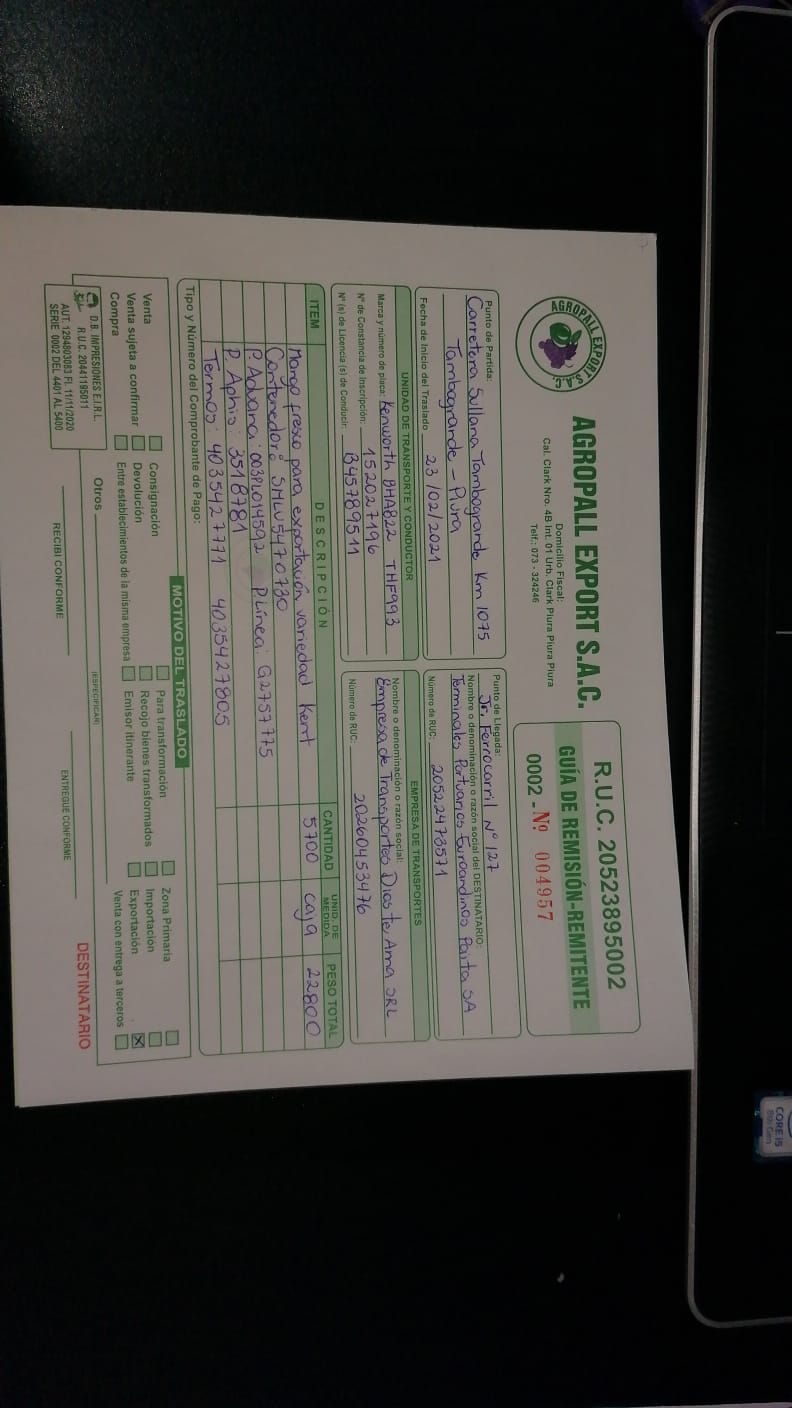 AGROPALL EXPORT S.A.C.
AGROPALL EXPORT S.A.C.
Domicilio Fiscal:
Cal. Clark Nro. 4B Int. 01 Urb. Clark Piura Piura Piura
Telf.: 073 - 324246
R.U.C. 20523895002
GUÍA DE REMISIÓN-REMITENTE
0002 - Nº 004957
Punto de Partida:
Carretera Sullana Tambogrande Km 1075
Tambogrande - Piura
Fecha de Inicio del Traslado 23/02/2021
Punto de Llegada:
Jr. Ferrocarril Nº 127
Nombre o denominación o razón social del DESTINATARIO:
Terminales Portuarios Euroandinos Paita SA
Número de RUC: 20522473571
UNIDAD DE TRANSPORTE Y CONDUCTOR
Marca y número de placa: Kenworth BHA822 THF993
Nº de Constancia de Inscripción: 152027196
Nº (s) de Licencia (s) de Conducir: B45789511
EMPRESA DE TRANSPORTES
Nombre o denominación o razón social:
Empresa de Transportes Dios te Ama SRL
Número de RUC: 20260453476
ITEM DESCRIPCIÓN CANTIDAD UNID. DE MEDIDA PESO TOTAL
Mango fresco para exportación variedad Kent 5700 caja 22800
Contenedor: SMLU5470730
P. Aduana: 003PL014592 P. Línea: G2757775
P. Aphis: 3518781
Termos: 4035427771 4035427805
Tipo y Número del Comprobante de Pago:
MOTIVO DEL TRASLADO
Venta Consignación Para transformación Zona Primaria
Venta sujeta a confirmar Devolución Recojo bienes transformados Importación
Compra Entre establecimientos de la misma empresa Emisor itinerante Exportación
Venta con entrega a terceros
Otros
(ESPECIFICAR)
D.B. IMPRESIONES E.I.R.L.
R.U.C. 20441195011
AUT. 1294803083 FI. 11/11/2020
SERIE 0002 DEL 4401 AL 5400
RECIBI CONFORME
ENTREGUE CONFORME
DESTINATARIO
CORE i5
8th Gen